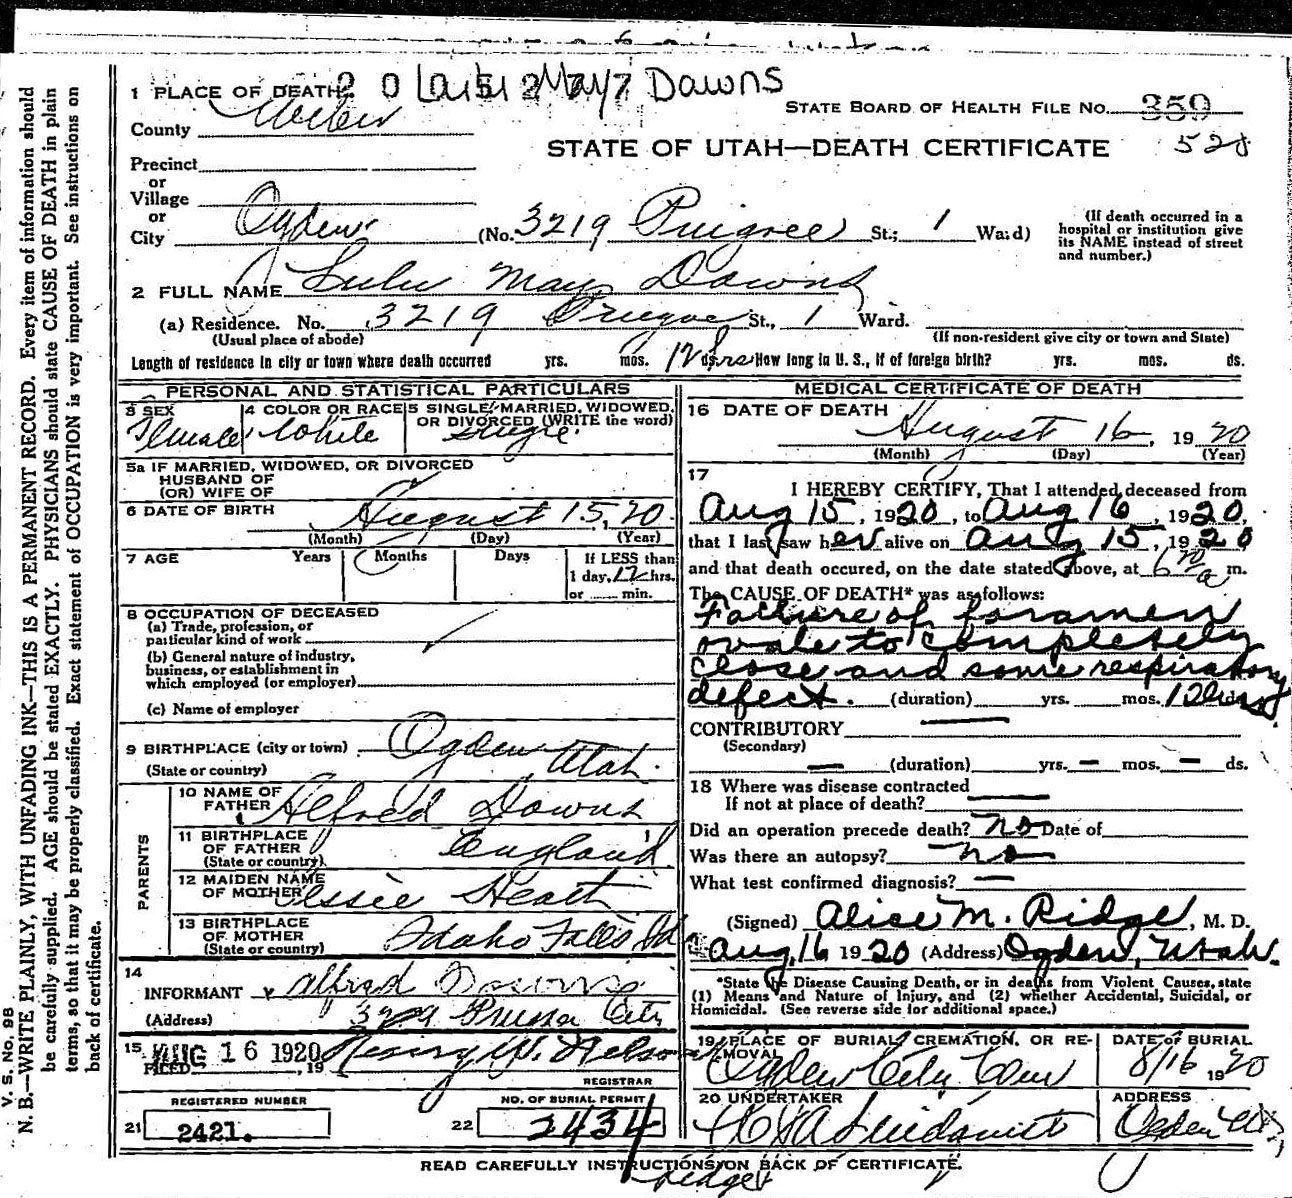 V. S. No. 98
N. B.—WRITE PLAINLY, WITH UNFADING INK—THIS IS A PERMANENT RECORD. Every item of information should
be carefully supplied. AGE should be stated EXACTLY. PHYSICIANS should state CAUSE OF DEATH in plain
terms, so that it may be properly classified. Exact statement of OCCUPATION is very important. See instructions on
back of certificate.
1 PLACE OF DEATH May Dawns
STATE BOARD OF HEALTH FILE No. 359
County Weber
STATE OF UTAH—DEATH CERTIFICATE 528
Precinct
or
Village
or
City Ogden (No. 3219 St.; 1 Ward)
(If death occurred in a
hospital or institution give
its NAME instead of street
and number.)
2 FULL NAME Lulu May Downs
(a) Residence. No. 3219 St., 1 Ward.
(Usual place of abode) (If non-resident give city or town and State)
Length of residence in city or town where death occurred yrs. mos. 12 hrs ds. How long in U. S., if of foreign birth? yrs. mos. ds.
PERSONAL AND STATISTICAL PARTICULARS
3 SEX 4 COLOR OR RACE 5 SINGLE, MARRIED, WIDOWED,
OR DIVORCED (WRITE the word)
Female White Single
5a IF MARRIED, WIDOWED, OR DIVORCED
HUSBAND OF
(OR) WIFE OF
6 DATE OF BIRTH August 15, 20
(Month) (Day) (Year)
7 AGE Years Months Days If LESS than
1 day, 12 hrs.
or min.
8 OCCUPATION OF DECEASED
(a) Trade, profession, or
particular kind of work
(b) General nature of industry,
business, or establishment in
which employed (or employer)
(c) Name of employer
9 BIRTHPLACE (city or town) Ogden
(State or country) Utah.
PARENTS
10 NAME OF
FATHER Alfred Downs
11 BIRTHPLACE
OF FATHER England
(State or country)
12 MAIDEN NAME
OF MOTHER Essie Heath
13 BIRTHPLACE
OF MOTHER Idaho Falls Id
(State or country)
14
INFORMANT Alfred Downs
(Address) City
15 AUG 16 1920 Henry W. Nelson
FILED , 19
REGISTRAR
REGISTERED NUMBER NO. OF BURIAL PERMIT
21 2421. 22 2434
MEDICAL CERTIFICATE OF DEATH
16 DATE OF DEATH
August 16, 1920
(Month) (Day) (Year)
17
I HEREBY CERTIFY, That I attended deceased from
Aug 15, 1920, to Aug 16, 1920,
that I last saw her alive on Aug 15, 1920
and that death occured, on the date stated above, at 6 a m.
The CAUSE OF DEATH* was as follows:
Failure of foramen
ovale to completely
close and some respiratory
defect. (duration) yrs. mos. 12 hrs. ds.
CONTRIBUTORY —
(Secondary)
— (duration) yrs. — mos. — ds.
18 Where was disease contracted
If not at place of death? —
Did an operation precede death? no Date of
Was there an autopsy? no
What test confirmed diagnosis? —
(Signed) Alice M. Ridge, M. D.
Aug, 16 1920 (Address) Ogden, Utah.
*State the Disease Causing Death, or in deaths from Violent Causes, state
(1) Means and Nature of Injury, and (2) whether Accidental, Suicidal, or
Homicidal. (See reverse side for additional space.)
19 PLACE OF BURIAL, CREMATION, OR RE-
MOVAL
Ogden City Cem
DATE OF BURIAL
8/16 1920
20 UNDERTAKER
ADDRESS
Ogden
READ CAREFULLY INSTRUCTIONS ON BACK OF CERTIFICATE.